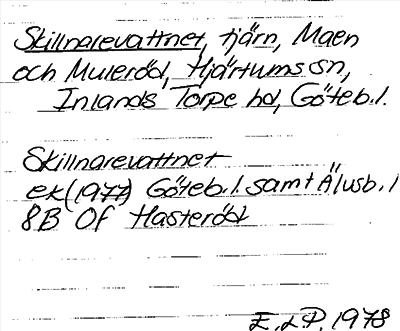 Skillnarevattnet, tjärn, Maen
och Muleröd, Hjärtums sn,
Inlands Torpe hd, Göteb. l.
Skillnarevattnet
ek (1977) Göteb. l. samt Älvsb. l
8B 0f Hasteröd
E. d P. 1978